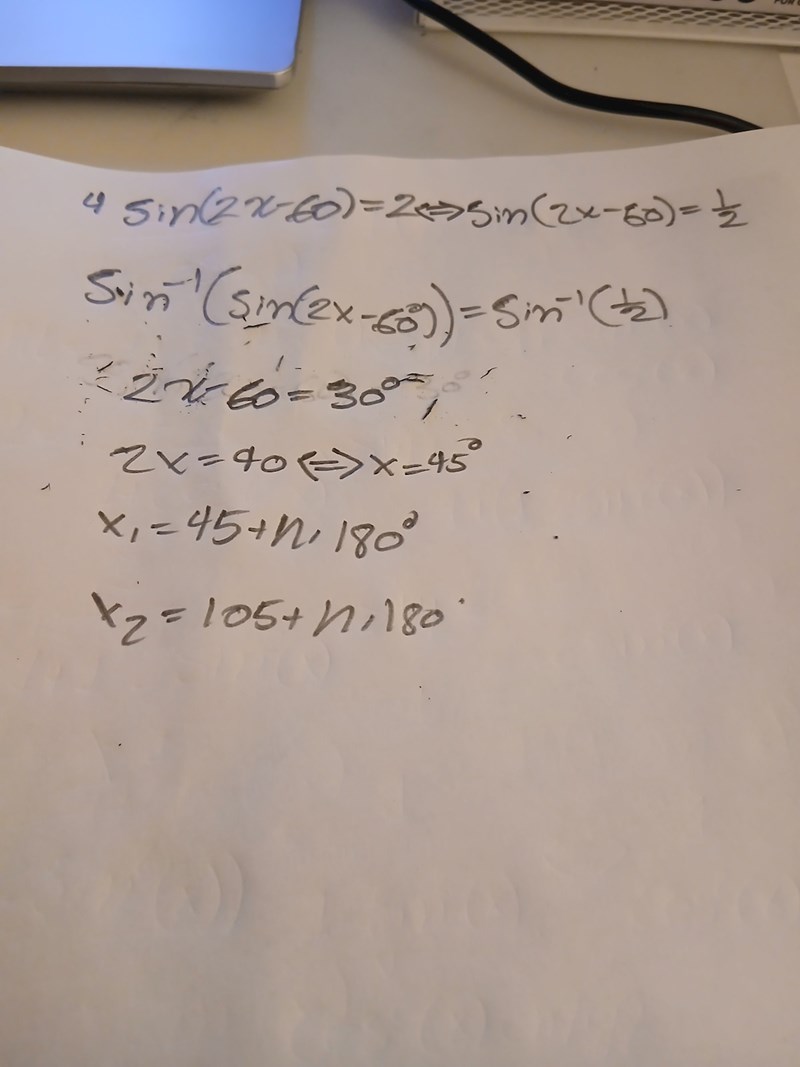 4 sin(2x-60)=2⇔sin(2x-60)=1/2
Sin⁻¹(sin(2x-60°))=Sin⁻¹(1/2)
2x-60=30°
2x=90⇔x=45°
x₁=45+n·180°
x₂=105+n·180°